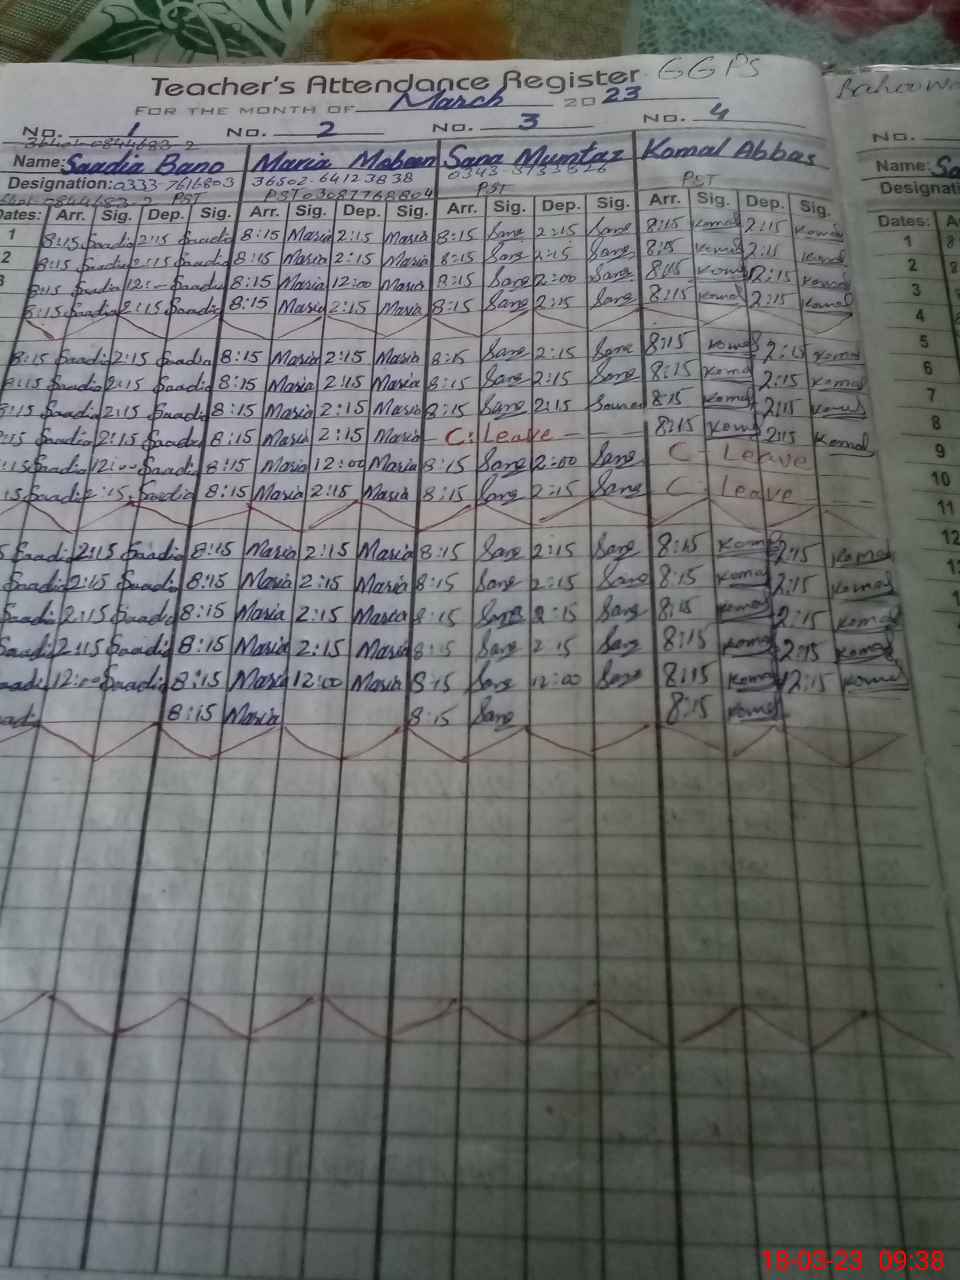 Teacher's Attendance Register GGPS
FOR THE MONTH OF March 2023
No. 1 No. 2 No. 3 No. 4
Name: Saadia Bano Maria Mobeen Sana Mumtaz Komal Abbas
Designation: 0333-7616803 36502-64123838 PST
PST PST 03087768804 PST
Dates: Arr. Sig. Dep. Sig. Arr. Sig. Dep. Sig. Arr. Sig. Dep. Sig. Arr. Sig. Dep. Sig.
1 8:15 Saadia 2:15 Saadia 8:15 Maria 2:15 Maria 8:15 Sana 2:15 Sana 8:15 Komal 2:15 Komal
2 8:15 Saadia 2:15 Saadia 8:15 Maria 2:15 Maria 8:15 Sana 2:15 Sana 8:15 Komal 2:15 Komal
3 8:15 Saadia 12:- Saadia 8:15 Maria 12:00 Maria 8:15 Sana 12:00 Sana 8:15 Komal 12:15 Komal
8:15 Saadia 2:15 Saadia 8:15 Maria 2:15 Maria 8:15 Sana 2:15 Sana 8:15 Komal 2:15 Komal
8:15 Saadia 2:15 Saadia 8:15 Maria 2:15 Maria 8:15 Sana 2:15 Sana 8:15 Komal 2:15 Komal
8:15 Saadia 2:15 Saadia 8:15 Maria 2:15 Maria 8:15 Sana 2:15 Sana 8:15 Komal 2:15 Komal
8:15 Saadia 2:15 Saadia 8:15 Maria 2:15 Maria 8:15 Sana 2:15 8:15 Komal 2:15 Komal
8:15 Saadia 2:15 Saadia 8:15 Maria 2:15 Maria C: Leave 8:15 Komal 2:15 Komal
:15 Saadia 12:-- Saadia 8:15 Maria 12:00 Maria 8:15 Sana 12:00 Sana C - Leave
15 Saadia 2:15 Saadia 8:15 Maria 2:15 Maria 8:15 Sana 2:15 Sana C - Leave
5 Saadia 2:15 Saadia 8:15 Maria 2:15 Maria 8:15 Sana 2:15 Sana 8:15 Komal 2:15 Komal
Saadia 2:15 Saadia 8:15 Maria 2:15 Maria 8:15 Sana 2:15 Sana 8:15 Komal 2:15 Komal
Saadia 2:15 Saadia 8:15 Maria 2:15 Maria 8:15 Sana 2:15 Sana 8:15 Komal 2:15 Komal
Saadia 2:15 Saadia 8:15 Maria 2:15 Maria 8:15 Sana 2:15 Sana 8:15 Komal 2:15 Komal
aadia 12:-0 Saadia 8:15 Maria 12:00 Maria 8:15 Sana 12:00 Sana 8:15 Komal 12:15 Komal
adia 8:15 Maria 8:15 Sana 8:15 Komal
No.
Name: Sa
Designati
Dates: A
1 8
2 8
3
4
5
6
7
8
9
10
11
12
18-03-23 09:38